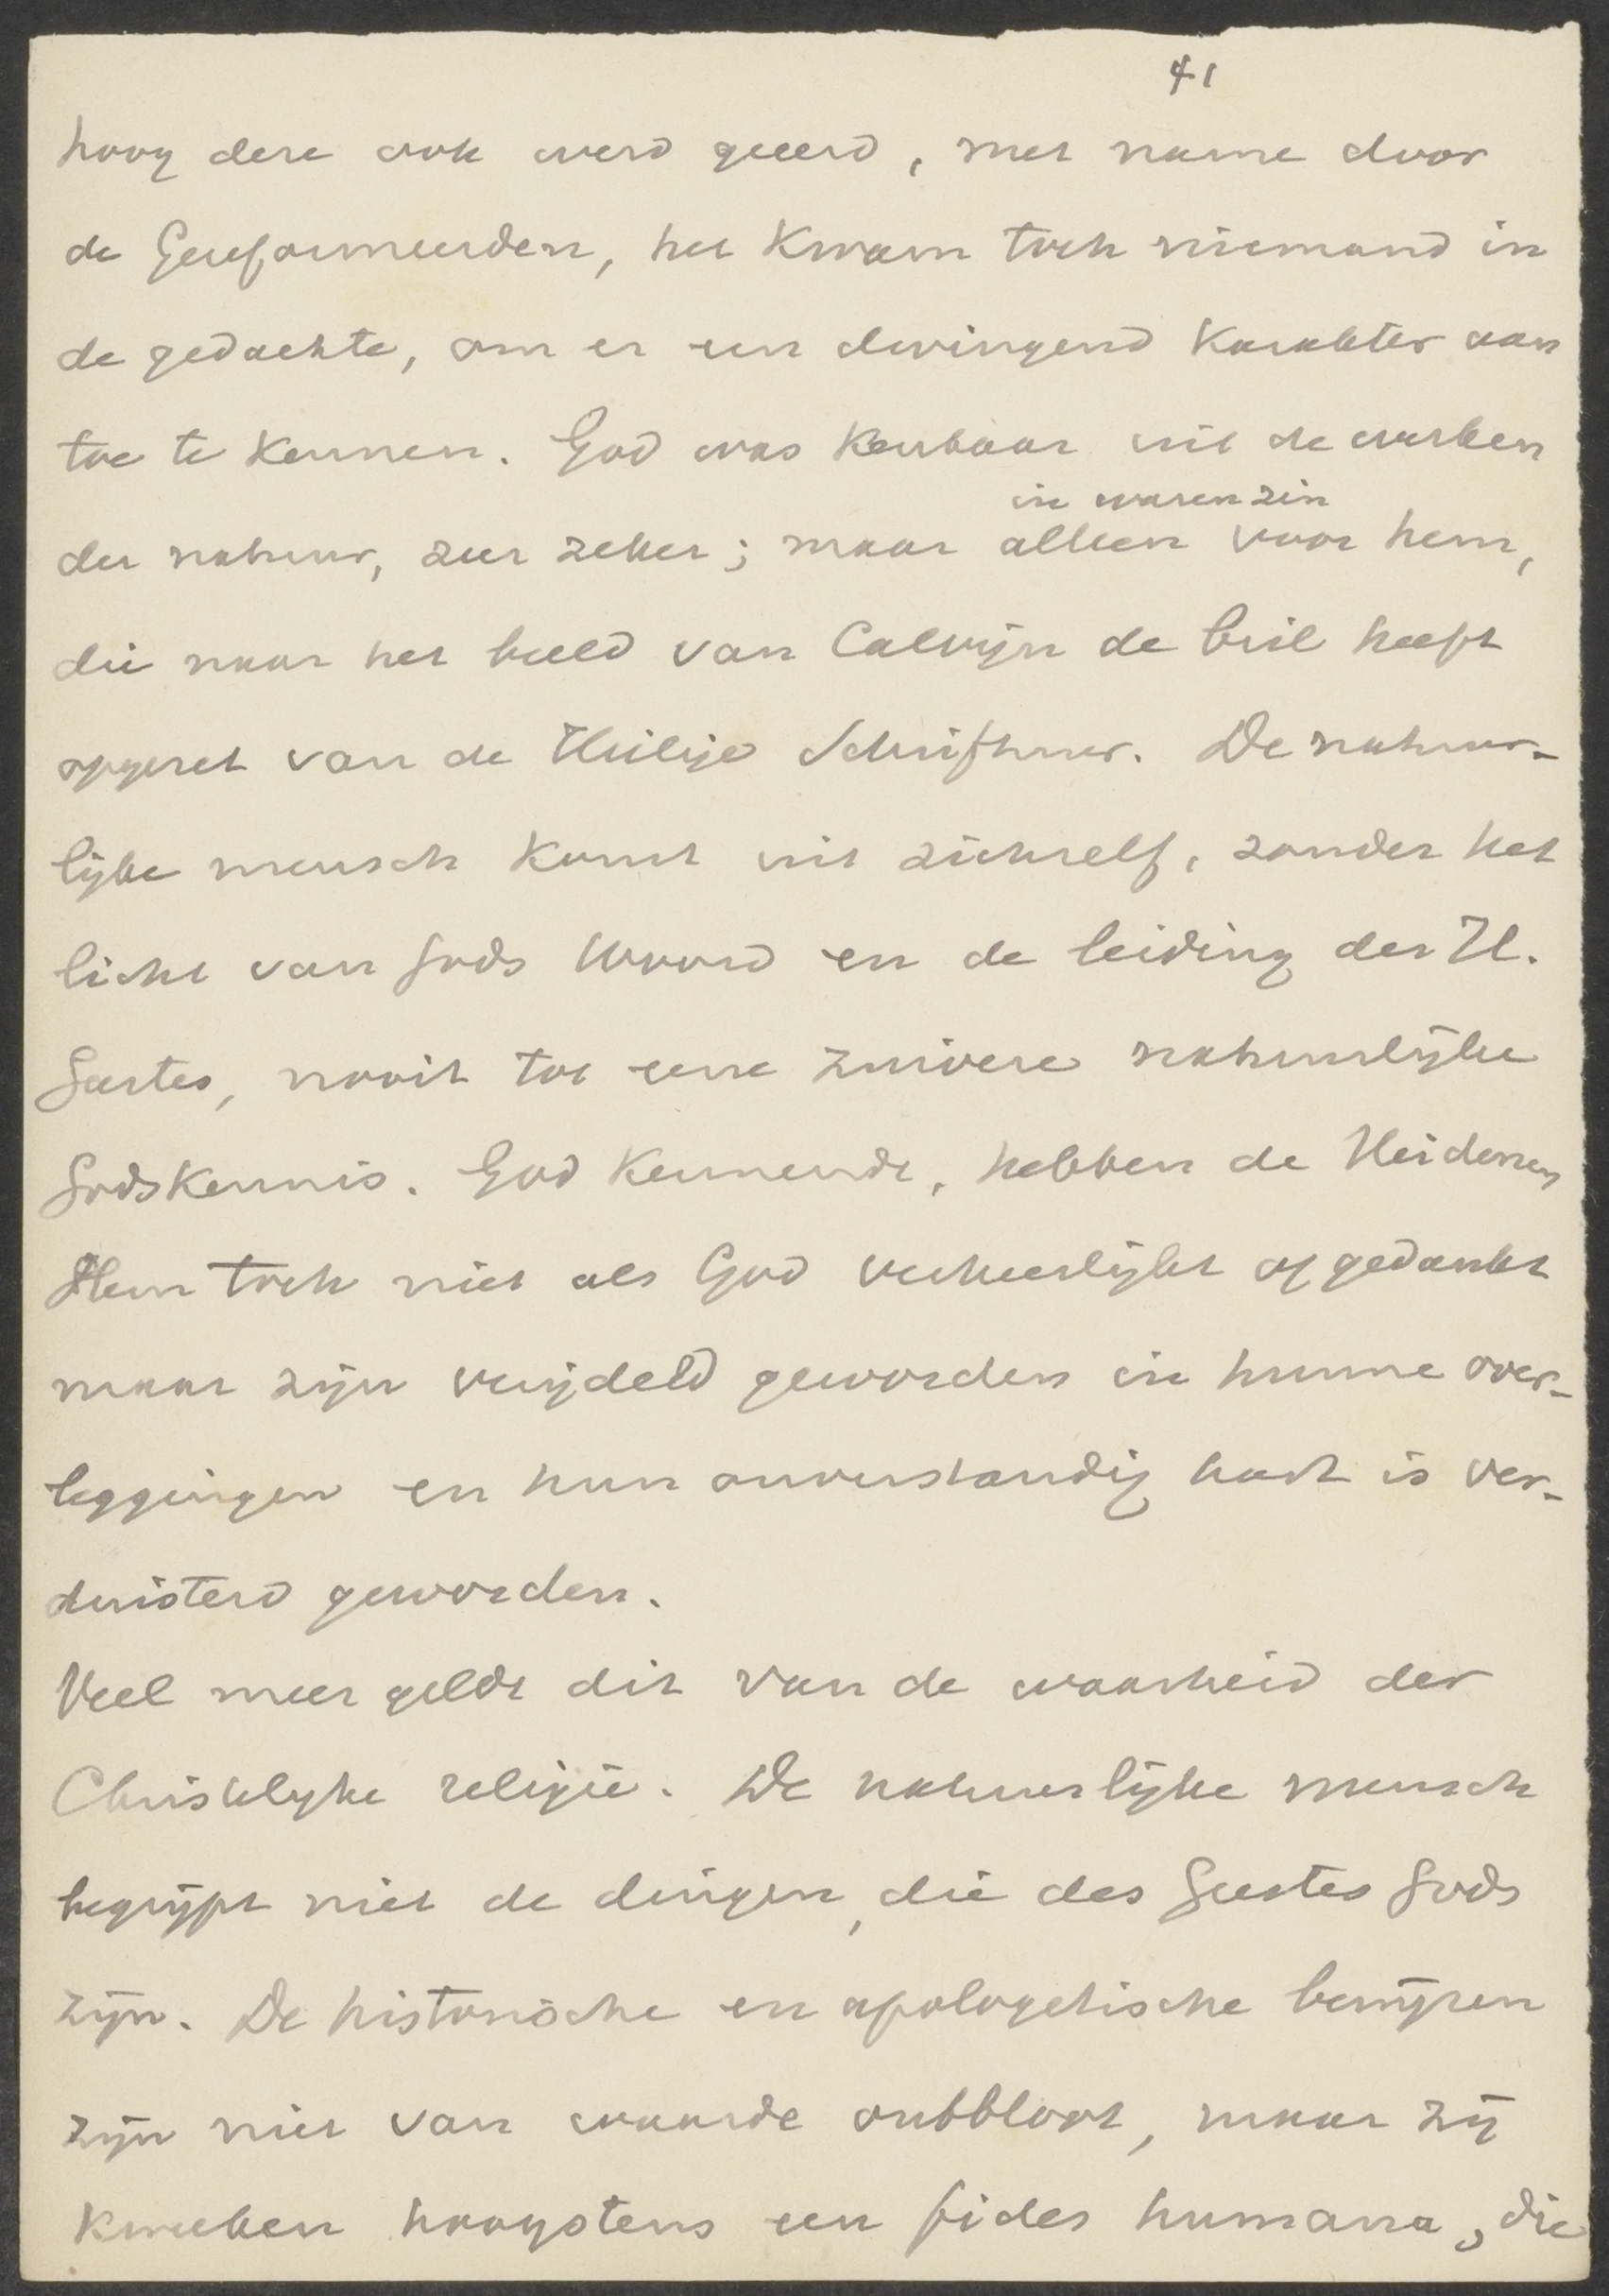 41
hoog deze ook werd geëerd, met name door
de Gereformeerden, het kwam toch niemand in
de gedachte, om er een dwingend karakter aan
toe te kennen. God was kenbaar uit de werken
in waren zin
der natuur, zeer zeker; maar alleen voor hem,
die naar het beeld van Calvijn de bril heeft
opgezet van de Heilige Schriftuur. De natuur-
lijke mensch komt uit zichzelf, zonder het
licht van Gods Woord en de leiding des H.
Geestes, nooit tot eene zuivere natuurlijke
Godskennis. God kennende, hebben de Heidenen
Hem toch niet als God verheerlijkt of gedankt
maar zijn verijdeld geworden in hunne over-
leggingen en hun onverstandig hart is ver-
duisterd geworden.
Veel meer geldt dit van de waarheid der
Christelyke religie. De natuurlijke mensch
begrijpt niet de dingen, die des Geestes Gods
zijn. De historische en apologetische bewijzen
zijn niet van waarde ontbloot, maar zij
kweeken hoogstens een fides humana, die